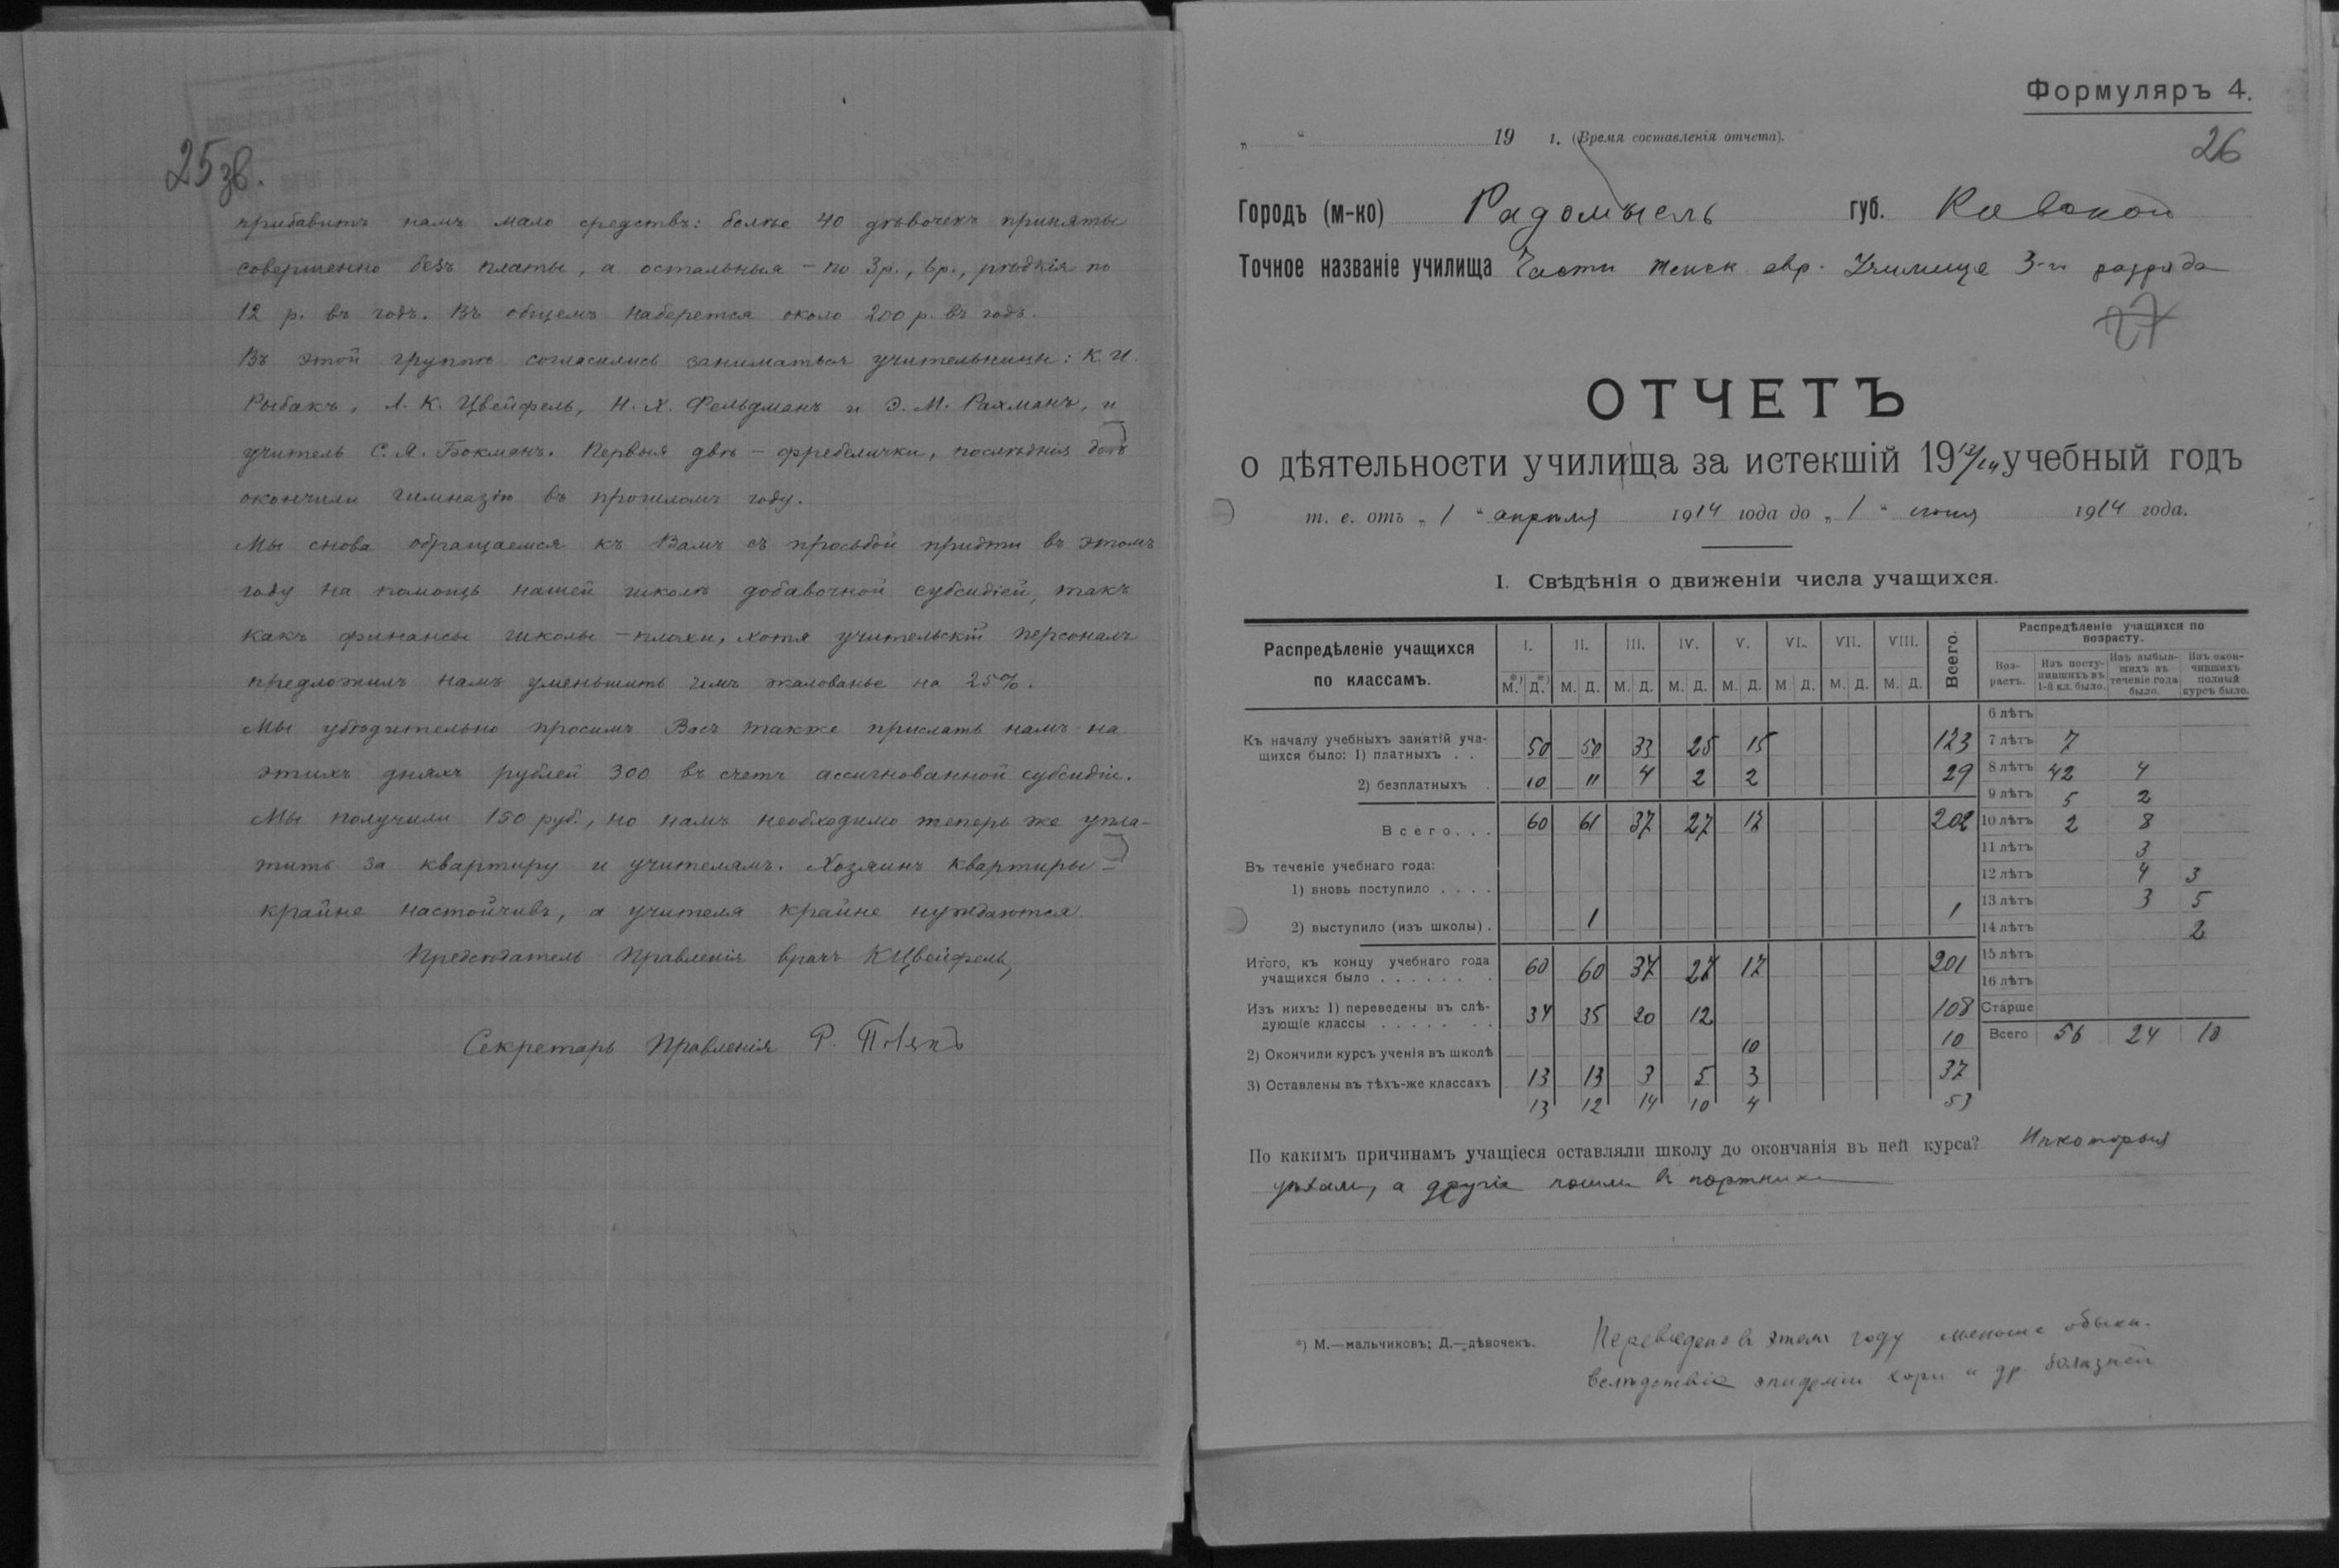 25 зв.
прибавитъ намъ мало средствъ: болѣе 40 дѣвочекъ приняты
совершенно безъ платы, а остальныя – по 3р., 6р., рѣдкія по
12 р. въ годъ. Въ общемъ наберется около 200 р. въ годъ.
Въ этой группѣ согласились заниматься учительницы: К. И.
Рыбакъ, Л. К. Цвейфель, Н. Х. Фельдманъ и Э. М. Рахманъ, и
учитель С. Я. Бокманъ. Первыя двѣ – фребелички, послѣднія двѣ
окончили гимназію въ прошломъ году.
Мы снова обращаемся къ Вамъ съ просьбой придти въ этомъ
году на помощь нашей школѣ добавочной субсидіей, такъ
какъ финансы школы – плохи, хотя учительскій персоналъ
предложилъ намъ уменьшить имъ жалованье на 25%.
Мы убѣдительно просимъ Васъ также прислать намъ на
этихъ дняхъ рублей 300 въ счетъ ассигнованной субсидіи.
Мы получили 150 руб., но намъ необходимо теперь же упла-
тить за квартиру и учителямъ. Хозяинъ квартиры –
крайне настойчивъ, а учителя крайне нуждаются.
Предсѣдатель Правленія врачъ КЦвейфель
Секретарь Правленія Р. Полякъ
Формуляръ 4.
„ “ 19 г. (Время составленія отчета).
26
Городъ (м-ко) Радомысль губ. Киевской
Точное названіе училища Частн женск евр. Училище 3-го разряда
27
ОТЧЕТЪ
о дѣятельности училища за истекшій 1913/14 учебный годъ
т. е. отъ „ 1 “ апрѣля 1914 года до „ 1 “ июня 1914 года.
I. Свѣдѣнія о движеніи числа учащихся.
Распредѣленіе учащихся по классамъ. I. II. III. IV. V. VI. VII. VIII. Всего.
М.*) Д.*) М. Д. М. Д. М. Д. М. Д. М Д. М. Д. М. Д.
Къ началу учебныхъ занятій уча-
щихся было: 1) платныхъ . . 50 50 33 25 15 173
2) безплатныхъ . 10 11 4 2 2 29
Всего. . . 60 61 37 27 17 202
Въ теченіе учебнаго года:
1) вновь поступило . . . .
2) выступило (изъ школы) . 1 1
Итого, къ концу учебнаго года
учащихся было . . . . . . . 60 60 37 27 17 201
Изъ нихъ: 1) переведены въ слѣ-
дующіе классы . . . . . . . 34 35 20 12 108
2) Окончили курсъ ученія въ школѣ 10 10
3) Оставлены въ тѣхъ-же классахъ 13 13 3 5 3 37
13 12 14 10 4 53
Распредѣленіе учащихся по
возрасту.
Воз-
растъ.
Изъ посту-
пившихъ въ
1-й кл. было.
Изъ выбыв-
шихъ въ
теченіе года
было.
Изъ окон-
чившихъ
полный
курсъ было.
6 лѣтъ
7 лѣтъ 7
8 лѣтъ 42 4
9 лѣтъ 5 2
10 лѣтъ 2 8
11 лѣтъ 3
12 лѣтъ 4 3
13 лѣтъ 3 5
14 лѣтъ 2
15 лѣтъ
16 лѣтъ
Старше
Всего 56 24 10
По какимъ причинамъ учащіеся оставляли школу до окончанія въ ней курса? Нѣкоторыя
уѣхали, а другіе пошли въ портнихи
*) М.—мальчиковъ; Д.—дѣвочекъ.
Переведено въ этомъ году меньше обыкн.
вслѣдствіе эпидеміи кори и др. болѣзней